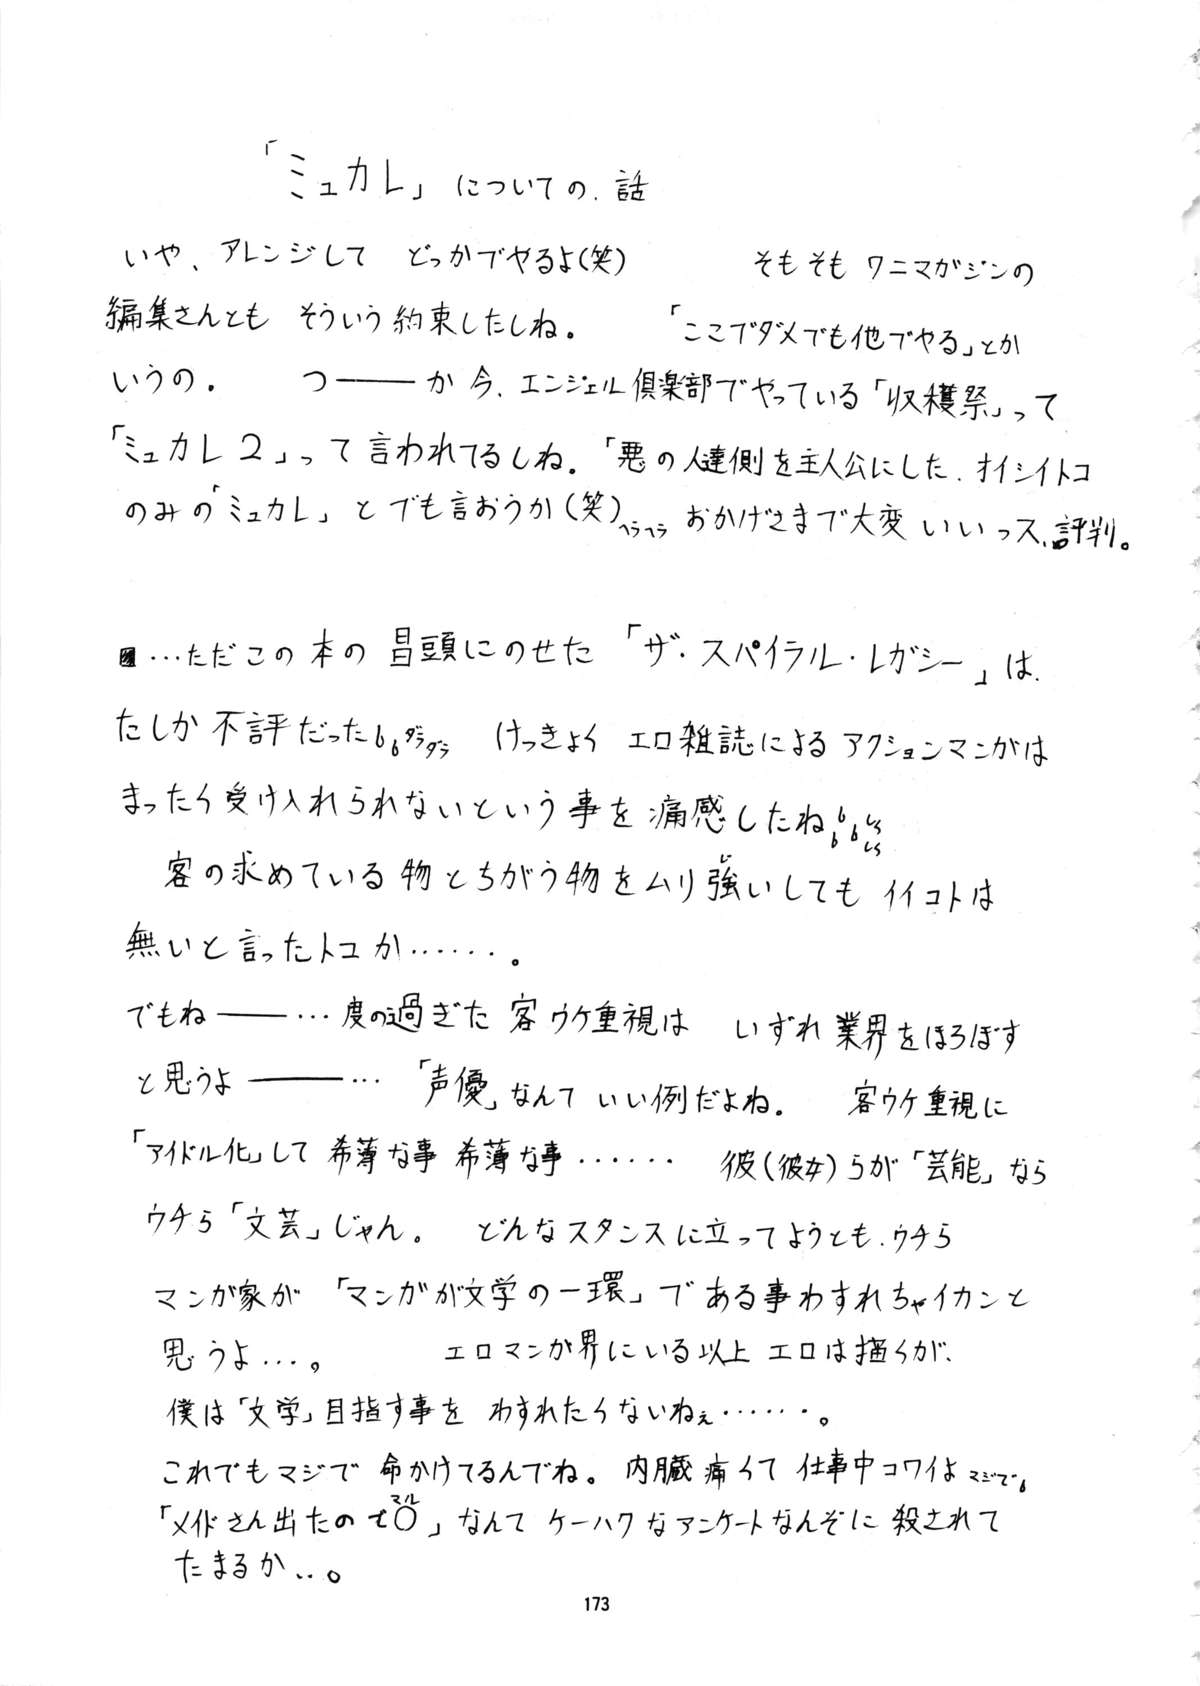 「ミュカレ」についての、話
いや、アレンジして どっかでやるよ(笑) そもそも ワニマガジンの
編集さんとも そういう約束したしね。 「ここでダメでも他でやる」とか
いうの。 つ――か今、エンジェル倶楽部でやっている「収穫祭」って
「ミュカレ2」って言われてるしね。「悪の人達側を主人公にした、オイシイトコ
のみの「ミュカレ」とでも言おうか(笑)ヘラヘラ おかげさまで大変いいっス、評判。
…ただこの本の冒頭にのせた「ザ・スパイラル・レガシー」は、
たしか不評だった ダラダラ けっきょく エロ雑誌によるアクションマンガは
まったく受け入れられないという事を痛感したね
客の求めている物とちがう物をムリ強いしても イイコトは
無いと言ったトコか……。
でもね――…度の過ぎた客ウケ重視は いずれ業界をほろぼす
と思うよ――… 「声優」なんていい例だよね。 客ウケ重視に
「アイドル化」して希薄な事希薄な事…… 彼(彼女)らが「芸能」なら
ウチら「文芸」じゃん。 どんなスタンスに立ってようとも、ウチら
マンガ家が「マンガが文学の一環」である事わすれちゃイカンと
思うよ…。 エロマンガ界にいる以上エロは描くが、
僕は「文学」目指す事を わすれたくないねぇ……。
これでもマジで命かけてるんでね。内臓痛くて仕事中コワイよマジで
「メイドさん出たので〇マル」なんてケーハクなアンケートなんぞに殺されて
たまるか…。
173